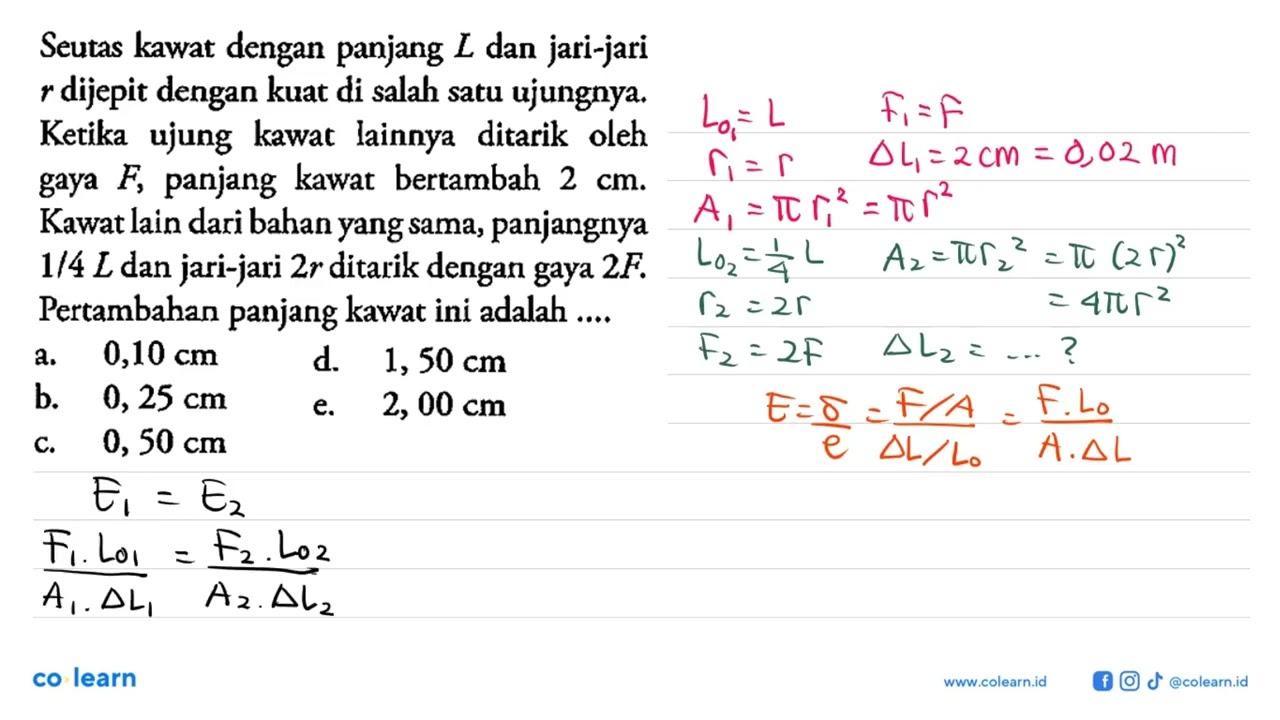 Seutas kawat dengan panjang L dan jari-jari
r dijepit dengan kuat di salah satu ujungnya.
Ketika ujung kawat lainnya ditarik oleh
gaya F, panjang kawat bertambah 2 cm.
Kawat lain dari bahan yang sama, panjangnya
1/4 L dan jari-jari 2r ditarik dengan gaya 2F.
Pertambahan panjang kawat ini adalah ....
a. 0,10 cm
b. 0, 25 cm
c. 0, 50 cm
d. 1, 50 cm
e. 2, 00 cm
L₀₁ = L F₁ = F
r₁ = r ΔL₁ = 2 cm = 0,02 m
A₁ = π r₁² = π r²
L₀₂ = 1/4 L A₂ = π r₂² = π (2r)²
r₂ = 2r = 4πr²
F₂ = 2F ΔL₂ = ... ?
E = σ/e = (F/A)/(ΔL/L₀) = (F . L₀)/(A . ΔL)
E₁ = E₂
(F₁ . L₀₁)/(A₁ . ΔL₁) = (F₂ . L₀₂)/(A₂ . ΔL₂)
co learn
www.colearn.id
@colearn.id